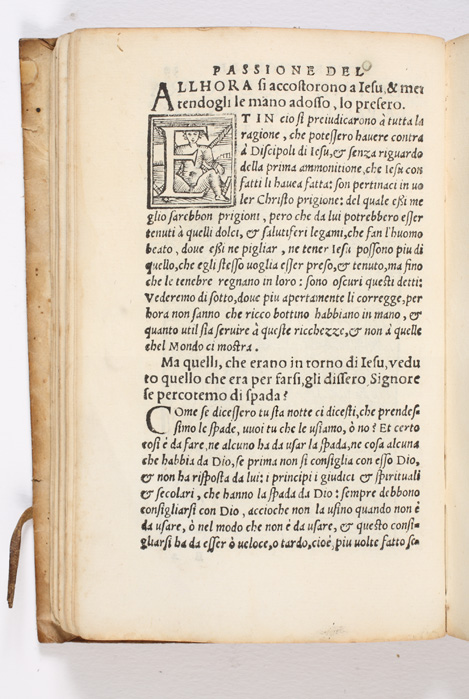 PASSIONE DEL
ALLHORA si accostorono a Iesu, & met
tendogli le mano adosso, lo presero.
ET IN cio si preiudicarono à tutta la
ragione, che potessero havere contra
à Discipoli di Iesu, & senza riguardo
della prima ammonitione, che Iesu con
fatti li havea fatta: son pertinaci in vo
ler Christo prigione: del quale eßi me
glio sarebbon prigioni, pero che da lui potrebbero esser
tenuti à quelli dolci, & salutiferi legami, che fan l'huomo
beato, dove eßi ne pigliar, ne tener Iesu possono piu di
quello, che egli stesso voglia esser preso, & tenuto, ma fino
che le tenebre regnano in loro: sono oscuri questi detti:
Vederemo di sotto, dove piu apertamente li corregge, per
hora non sanno che ricco bottino habbiano in mano, &
quanto util sia servire à queste ricchezze, & non à quelle
chel Mondo ci mostra.
Ma quelli, che erano in torno di Iesu, vedu
to quello che era per farsi, gli dissero, Signore
se percotemo di spada?
COme se dicessero tu sta notte ci dicesti, che prendes-
simo le spade, vuoi tu che le usiamo, ò no? Et certo
cosi è da fare, ne alcuno ha da usar la spada, ne cosa alcuna
che habbia da Dio, se prima non si consiglia con esso Dio,
& non ha risposta da lui: i principi i giudici & spirituali
& secolari, che hanno la spada da Dio: sempre debbono
consigliarsi con Dio, accioche non la usino quando non è
da usare, ò nel modo che non è da usare, & questo consi-
gliarsi ha da esser ò veloce, o tardo, cioè, piu volte fatto se-